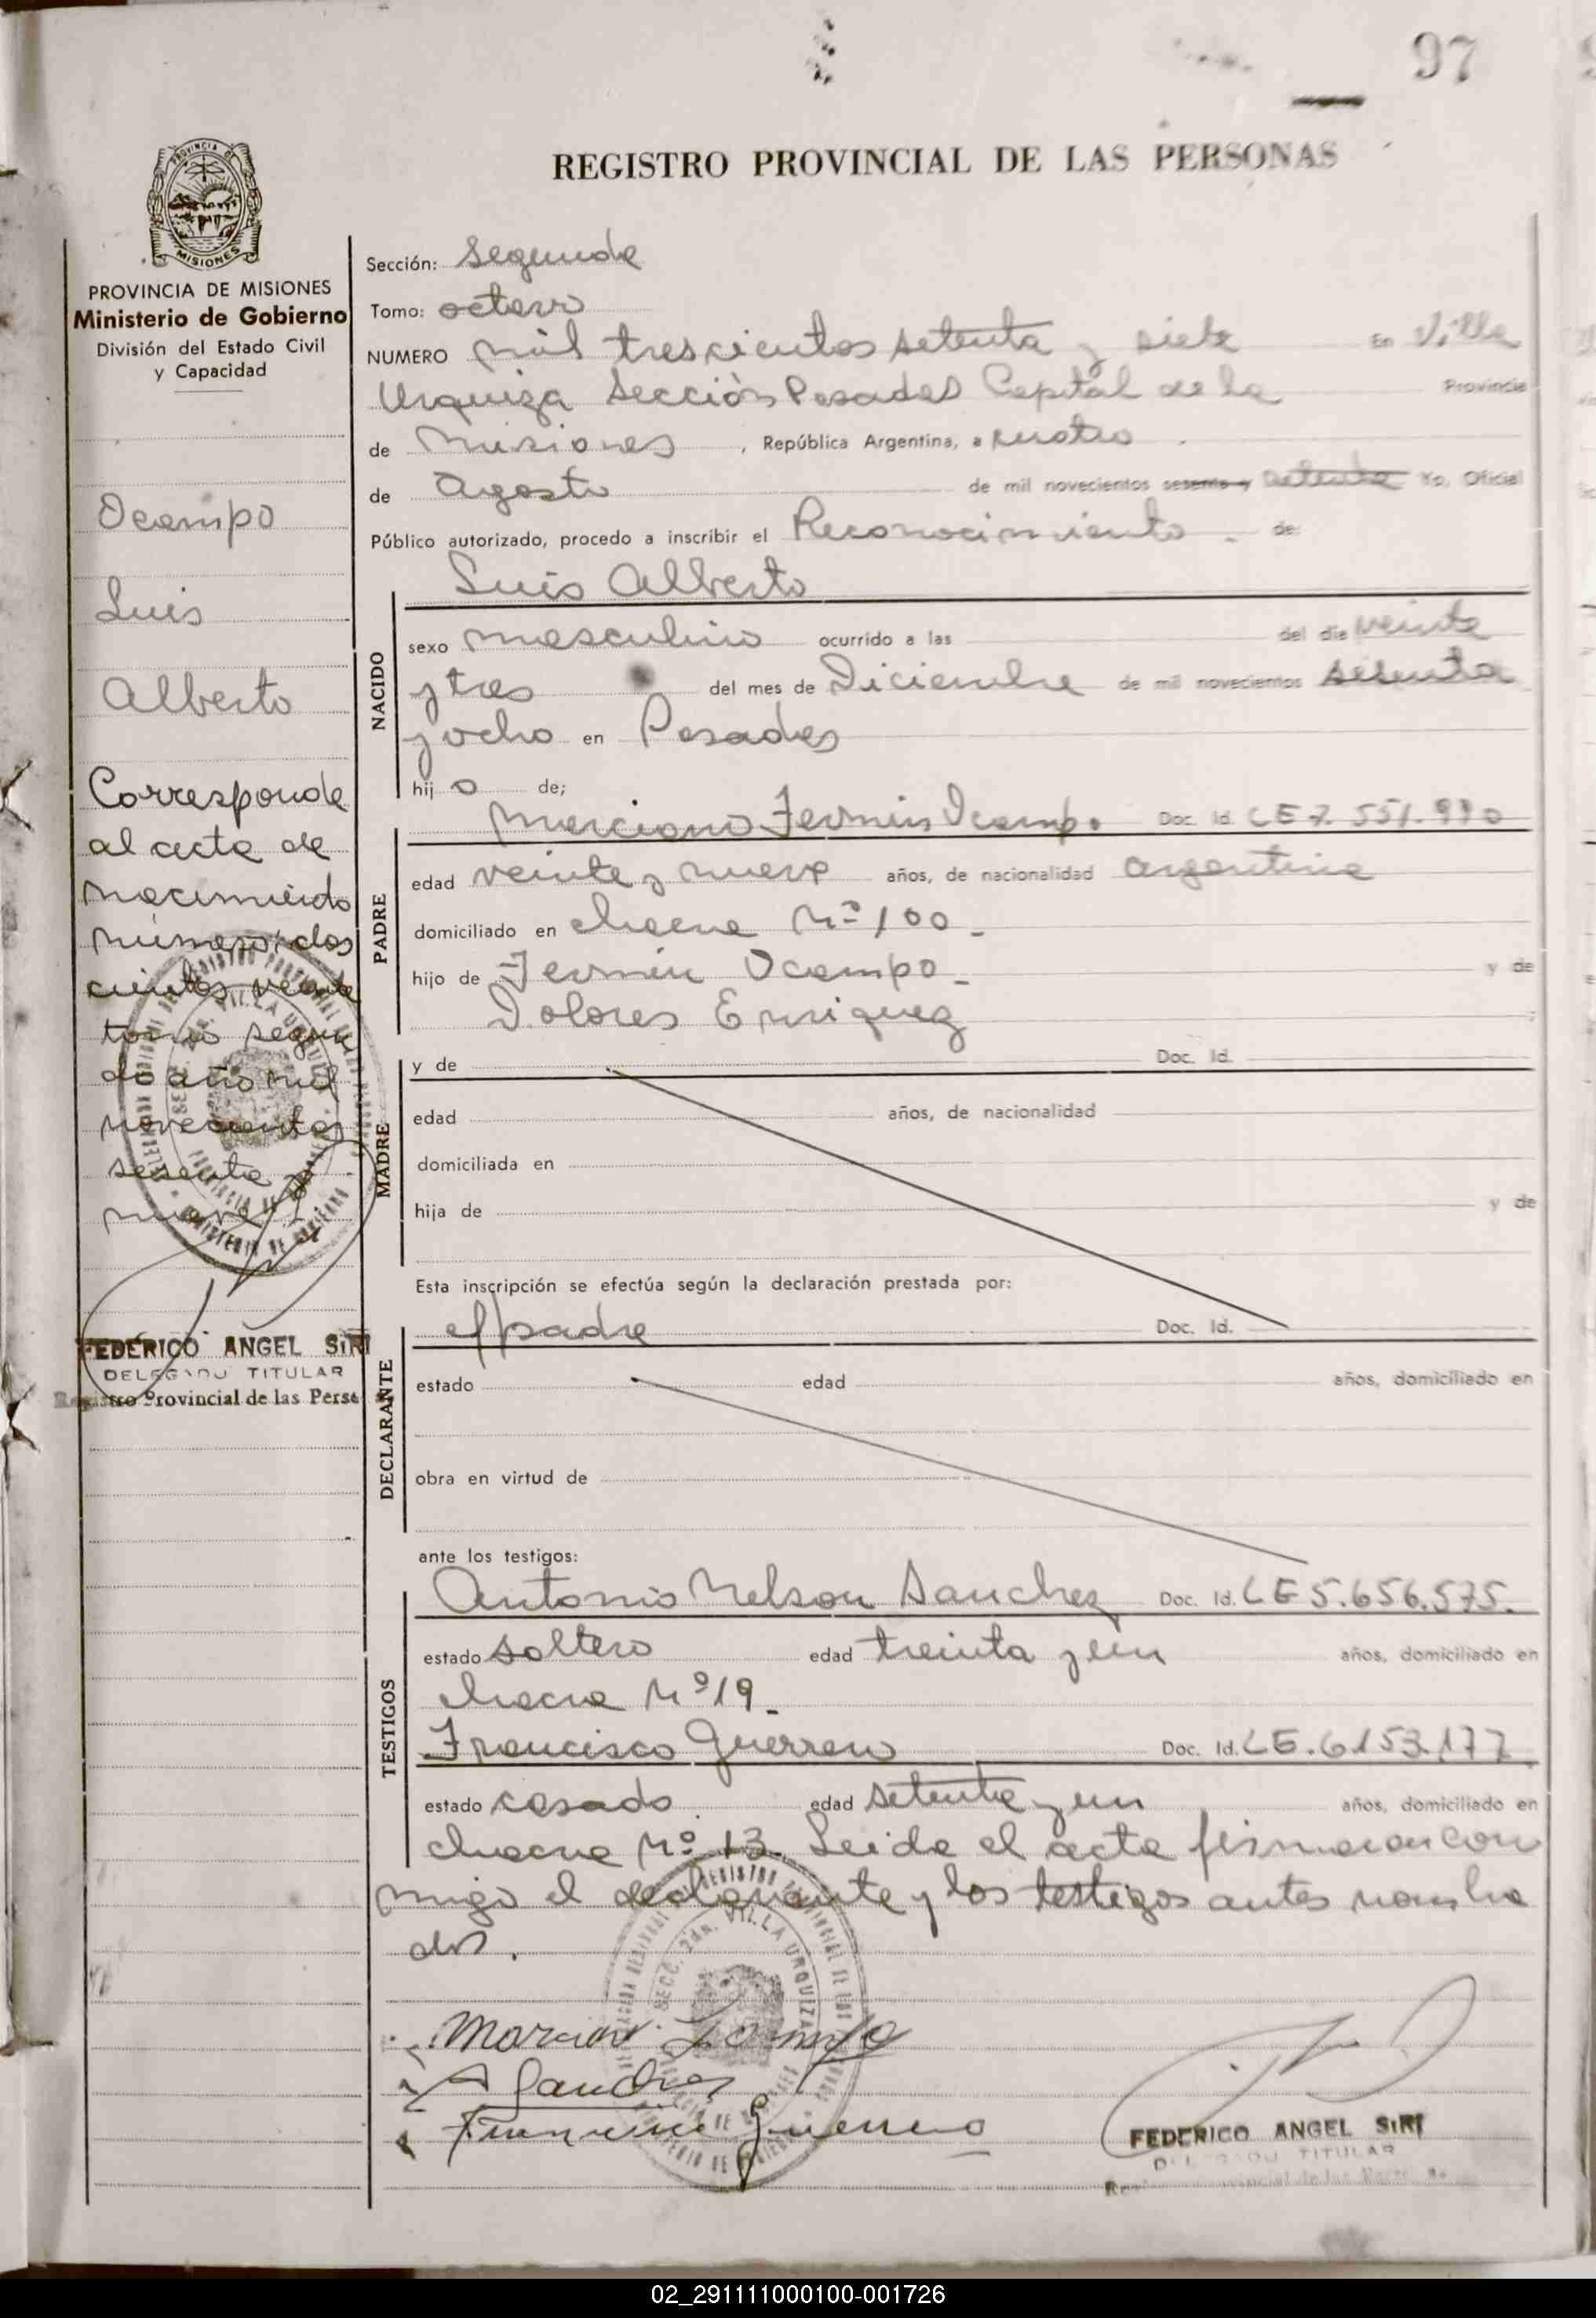 97
REGISTRO PROVINCIAL DE LAS PERSONAS
PROVINCIA DE
MISIONES
PROVINCIA DE MISIONES
Ministerio de Gobierno
División del Estado Civil
y Capacidad
Ocampo
Luis
Alberto
Corresponde
al acta de
nacimiento
número: dos
cientos veinte
tomo segun
do año mil
novecientos
sesenta y
nueve
FEDERICO ANGEL SIRI
DELEGADO TITULAR
Registro Provincial de las Perso
Sección: Segunda
Tomo: octavo
NUMERO mil trescientos setenta y siete En Villa
Urquiza Sección Posadas Capital de la Provincia
de Misiones, República Argentina, a cuatro
de Agosto de mil novecientos sesenta y setenta Yo, Oficial
Público autorizado, procedo a inscribir el Reconocimiento de:
Luis Alberto
NACIDO
sexo masculino ocurrido a las del día veinte
y tres del mes de Diciembre de mil novecientos sesenta
y ocho en Posadas
hij o de;
PADRE
Marciano Fermin Ocampo Doc. Id. LE 7.551.990
edad veinte y nueve años, de nacionalidad argentina
domiciliado en chacra Nº 100 -
hijo de Fermin Ocampo - y de
Dolores Enriquez
MADRE
y de Doc. Id.
edad años, de nacionalidad
domiciliada en
hija de y de
Esta inscripción se efectúa según la declaración prestada por:
DECLARANTE
el padre Doc. Id.
estado edad años, domiciliado en
obra en virtud de
ante los testigos:
TESTIGOS
Antonio Nelson Sanchez Doc. Id. LE 5.656.575.
estado soltero edad treinta y un años, domiciliado en
chacra Nº 19 -
Francisco Guerrero Doc. Id. LE. 6153.177
estado casado edad setenta y un años, domiciliado en
chacra Nº 13. Leida el acta firmaron con
migo el declarante y los testigos antes nombra
dos.
A Sanchez
Francisco Guerrero
FEDERICO ANGEL SIRI
DELEGADO TITULAR
02_291111000100-001726